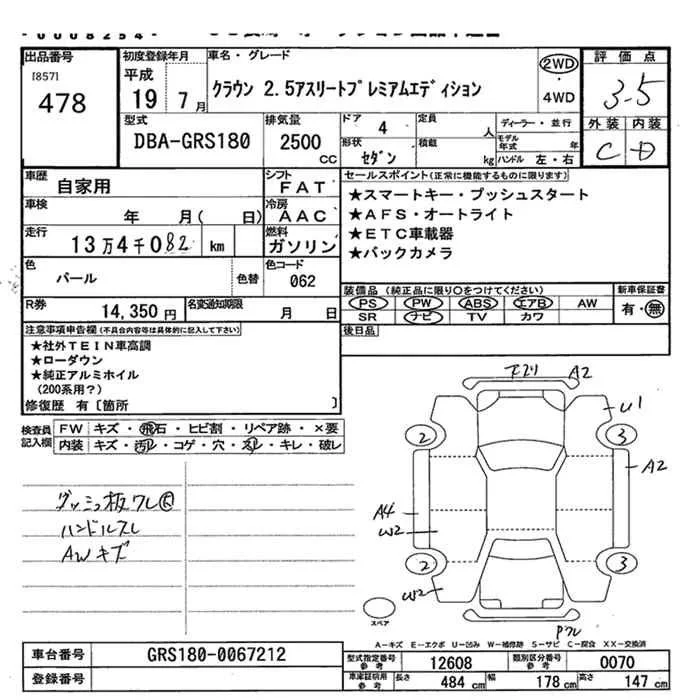 出品番号
[857]
478
初度登録年月
平成
19年7月
車名・グレード
クラウン 2.5アスリートプレミアムエディション
2WD
・4WD
評価点
3.5
外装 内装
C D
型式
DBA-GRS180
排気量
2500
CC
ドア
4
形状
セダン
定員
人
積載
kg
ディーラー・並行
モデル年式 年
ハンドル 左・右
車歴
自家用
シフト
FAT
車検
年 月( 日)
冷房
AAC
走行
13万4千082 km
燃料
ガソリン
色
パール
色替
色コード
062
R券
14,350円
名変通知期限
月 日
セールスポイント(正常に機能するものに限ります)
★スマートキー・プッシュスタート
★AFS・オートライト
★ETC車載器
★バックカメラ
装備品(純正品に限り○をつけてください)
PS PW ABS エアB AW
SR ナビ TV カワ
新車保証書
有・無
後日品
注意事項申告欄(不具合内容等は具体的に記入して下さい)
★社外TEIN車高調
★ローダウン
★純正アルミホイル
(200系用?)
修復歴 有[箇所 ]
検査員
記入欄
FW キズ・飛石・ヒビ割・リペア跡・×要
内装 キズ・汚レ・コゲ・穴・スレ・キレ・破レ
ハンドルスレ
AWキズ
A2
U1
2
3
A2
A4
W2
2
3
W2
スペア
A-キズ E-エクボ U-凹み W-補修跡 S-サビ C-腐食 XX-交換済
車台番号
GRS180-0067212
登録番号
型式指定番号
参考
12608
類別区分番号
参考
0070
車庫証明用
参考
長さ 484 cm
幅 178 cm
高さ 147 cm